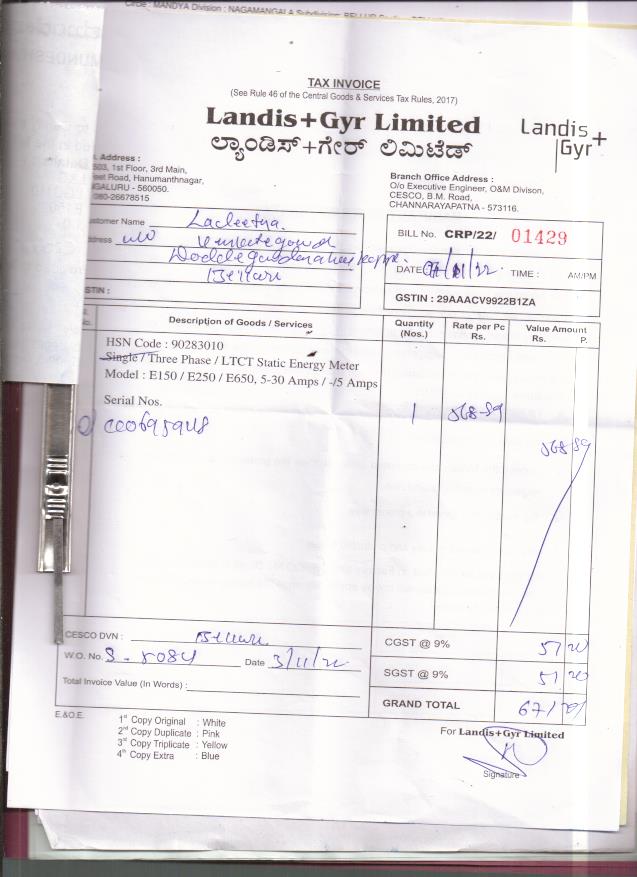 Circle : MANDYA Division : NAGAMANGALA Subdivision:
TAX INVOICE
(See Rule 46 of the Central Goods & Services Tax Rules, 2017)
Landis+Gyr Limited
ಲ್ಯಾಂಡಿಸ್+ಗೇರ್ ಲಿಮಿಟೆಡ್
Landis+
Gyr
Address :
503, 1st Floor, 3rd Main,
eet Road, Hanumanthnagar,
NGALURU - 560050.
080-26678515
Branch Office Address :
O/o Executive Engineer, O&M Divison,
CESCO, B.M. Road,
CHANNARAYAPATNA - 573116.
ustomer Name
ddress
STIN :
BILL No. CRP/22/ 01429
DATE TIME : AM/PM
GSTIN : 29AAACV9922B1ZA
No. Description of Goods / Services Quantity (Nos.) Rate per Pc Rs. Value Amount Rs. P.
HSN Code : 90283010
Single / Three Phase / LTCT Static Energy Meter
Model : E150 / E250 / E650, 5-30 Amps / -/5 Amps
Serial Nos.
1 568-89
568 89
CESCO DVN :
W.O. No. Date 3/11/22
Total Invoice Value (In Words) :
CGST @ 9%
SGST @ 9% 51 20
GRAND TOTAL
E.&O.E.
1st Copy Original : White
2nd Copy Duplicate : Pink
3rd Copy Triplicate : Yellow
4th Copy Extra : Blue
For Landis+Gyr Limited
Signature